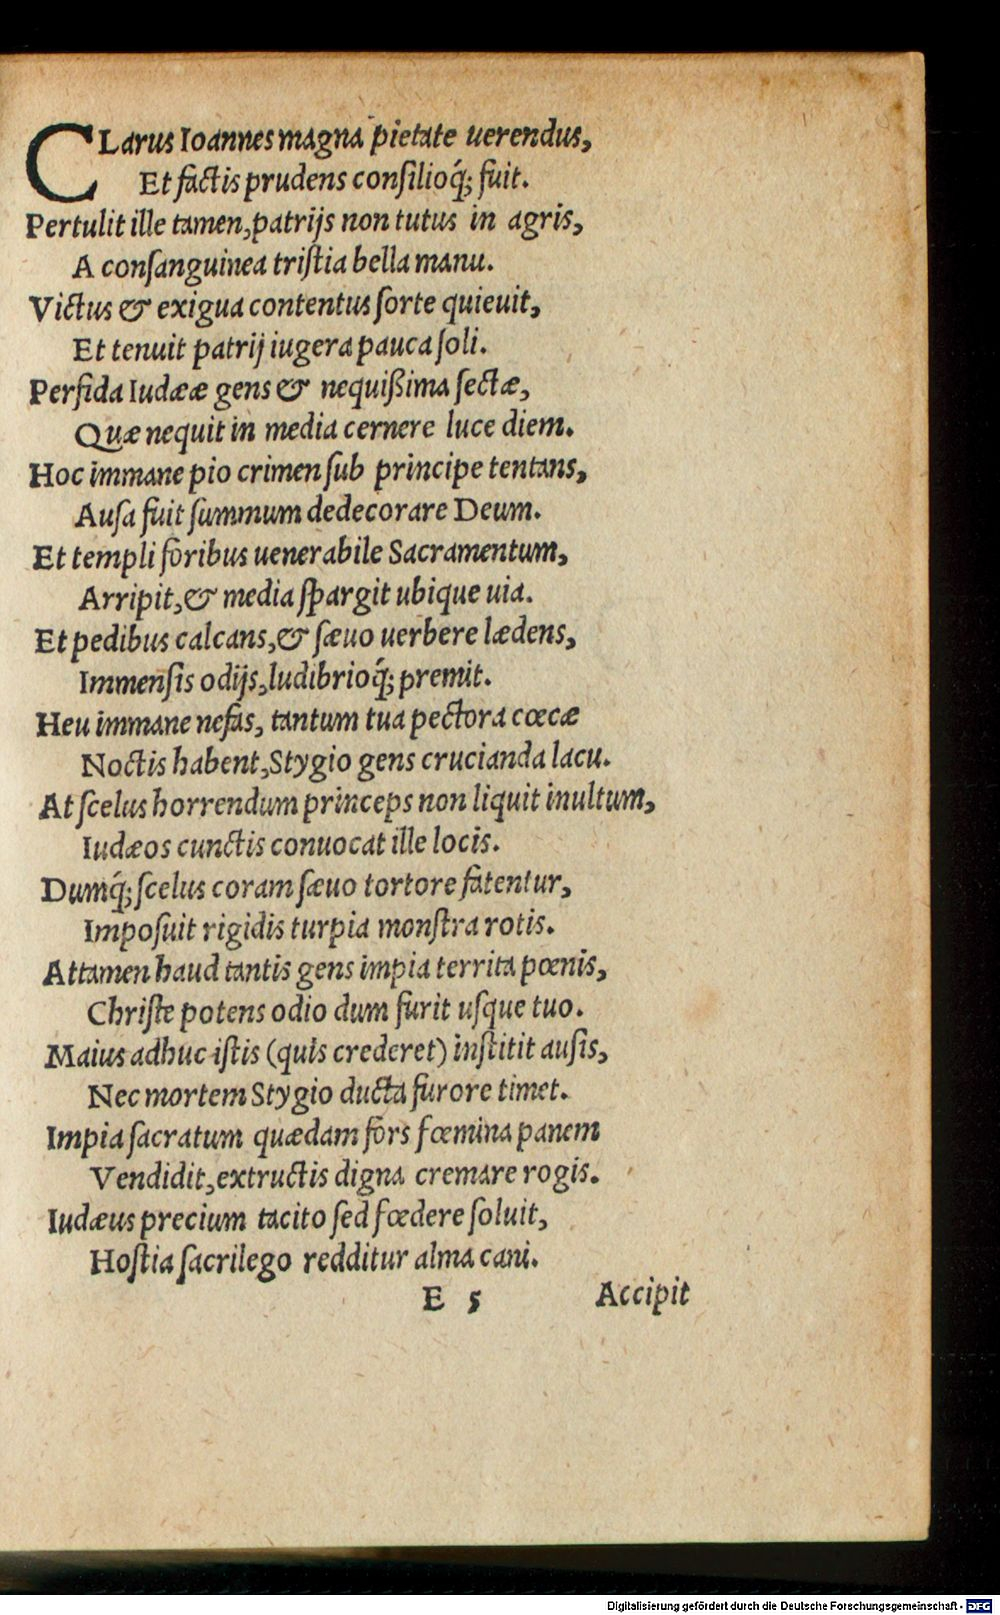 CLarus Ioannes magna pietate uerendus,
Et factis prudens consilioq́; fuit.
Pertulit ille tamen, patrijs non tutus in agris,
A consanguinea tristia bella manu.
Victus & exigua contentus sorte quieuit,
Et tenuit patrij iugera pauca soli.
Perfida Iudææ gens & nequißima sectæ,
Quæ nequit in media cernere luce diem.
Hoc immane pio crimen sub principe tentans,
Ausa fuit summum dedecorare Deum.
Et templi foribus uenerabile Sacramentum,
Arripit, & media spargit ubique uia.
Et pedibus calcans, & sæuo uerbere lædens,
Immensis odijs, ludibrioq́; premit.
Heu immane nefas, tantum tua pectora cœcæ
Noctis habent, Stygio gens crucianda lacu.
At scelus horrendum princeps non liquit inultum,
Iudæos cunctis conuocat ille locis.
Dumq́; scelus coram sæuo tortore fatentur,
Imposuit rigidis turpia monstra rotis.
Attamen haud tantis gens impia territa pœnis,
Christe potens odio dum furit usque tuo.
Maius adhuc istis (quis crederet) institit ausis,
Nec mortem Stygio ducta furore timet.
Impia sacratum quædam fors fœmina panem
Vendidit, extructis digna cremare rogis.
Iudæus precium tacito sed fœdere soluit,
Hostia sacrilego redditur alma cani.
E 5 Accipit
Digitalisierung gefördert durch die Deutsche Forschungsgemeinschaft - DFG